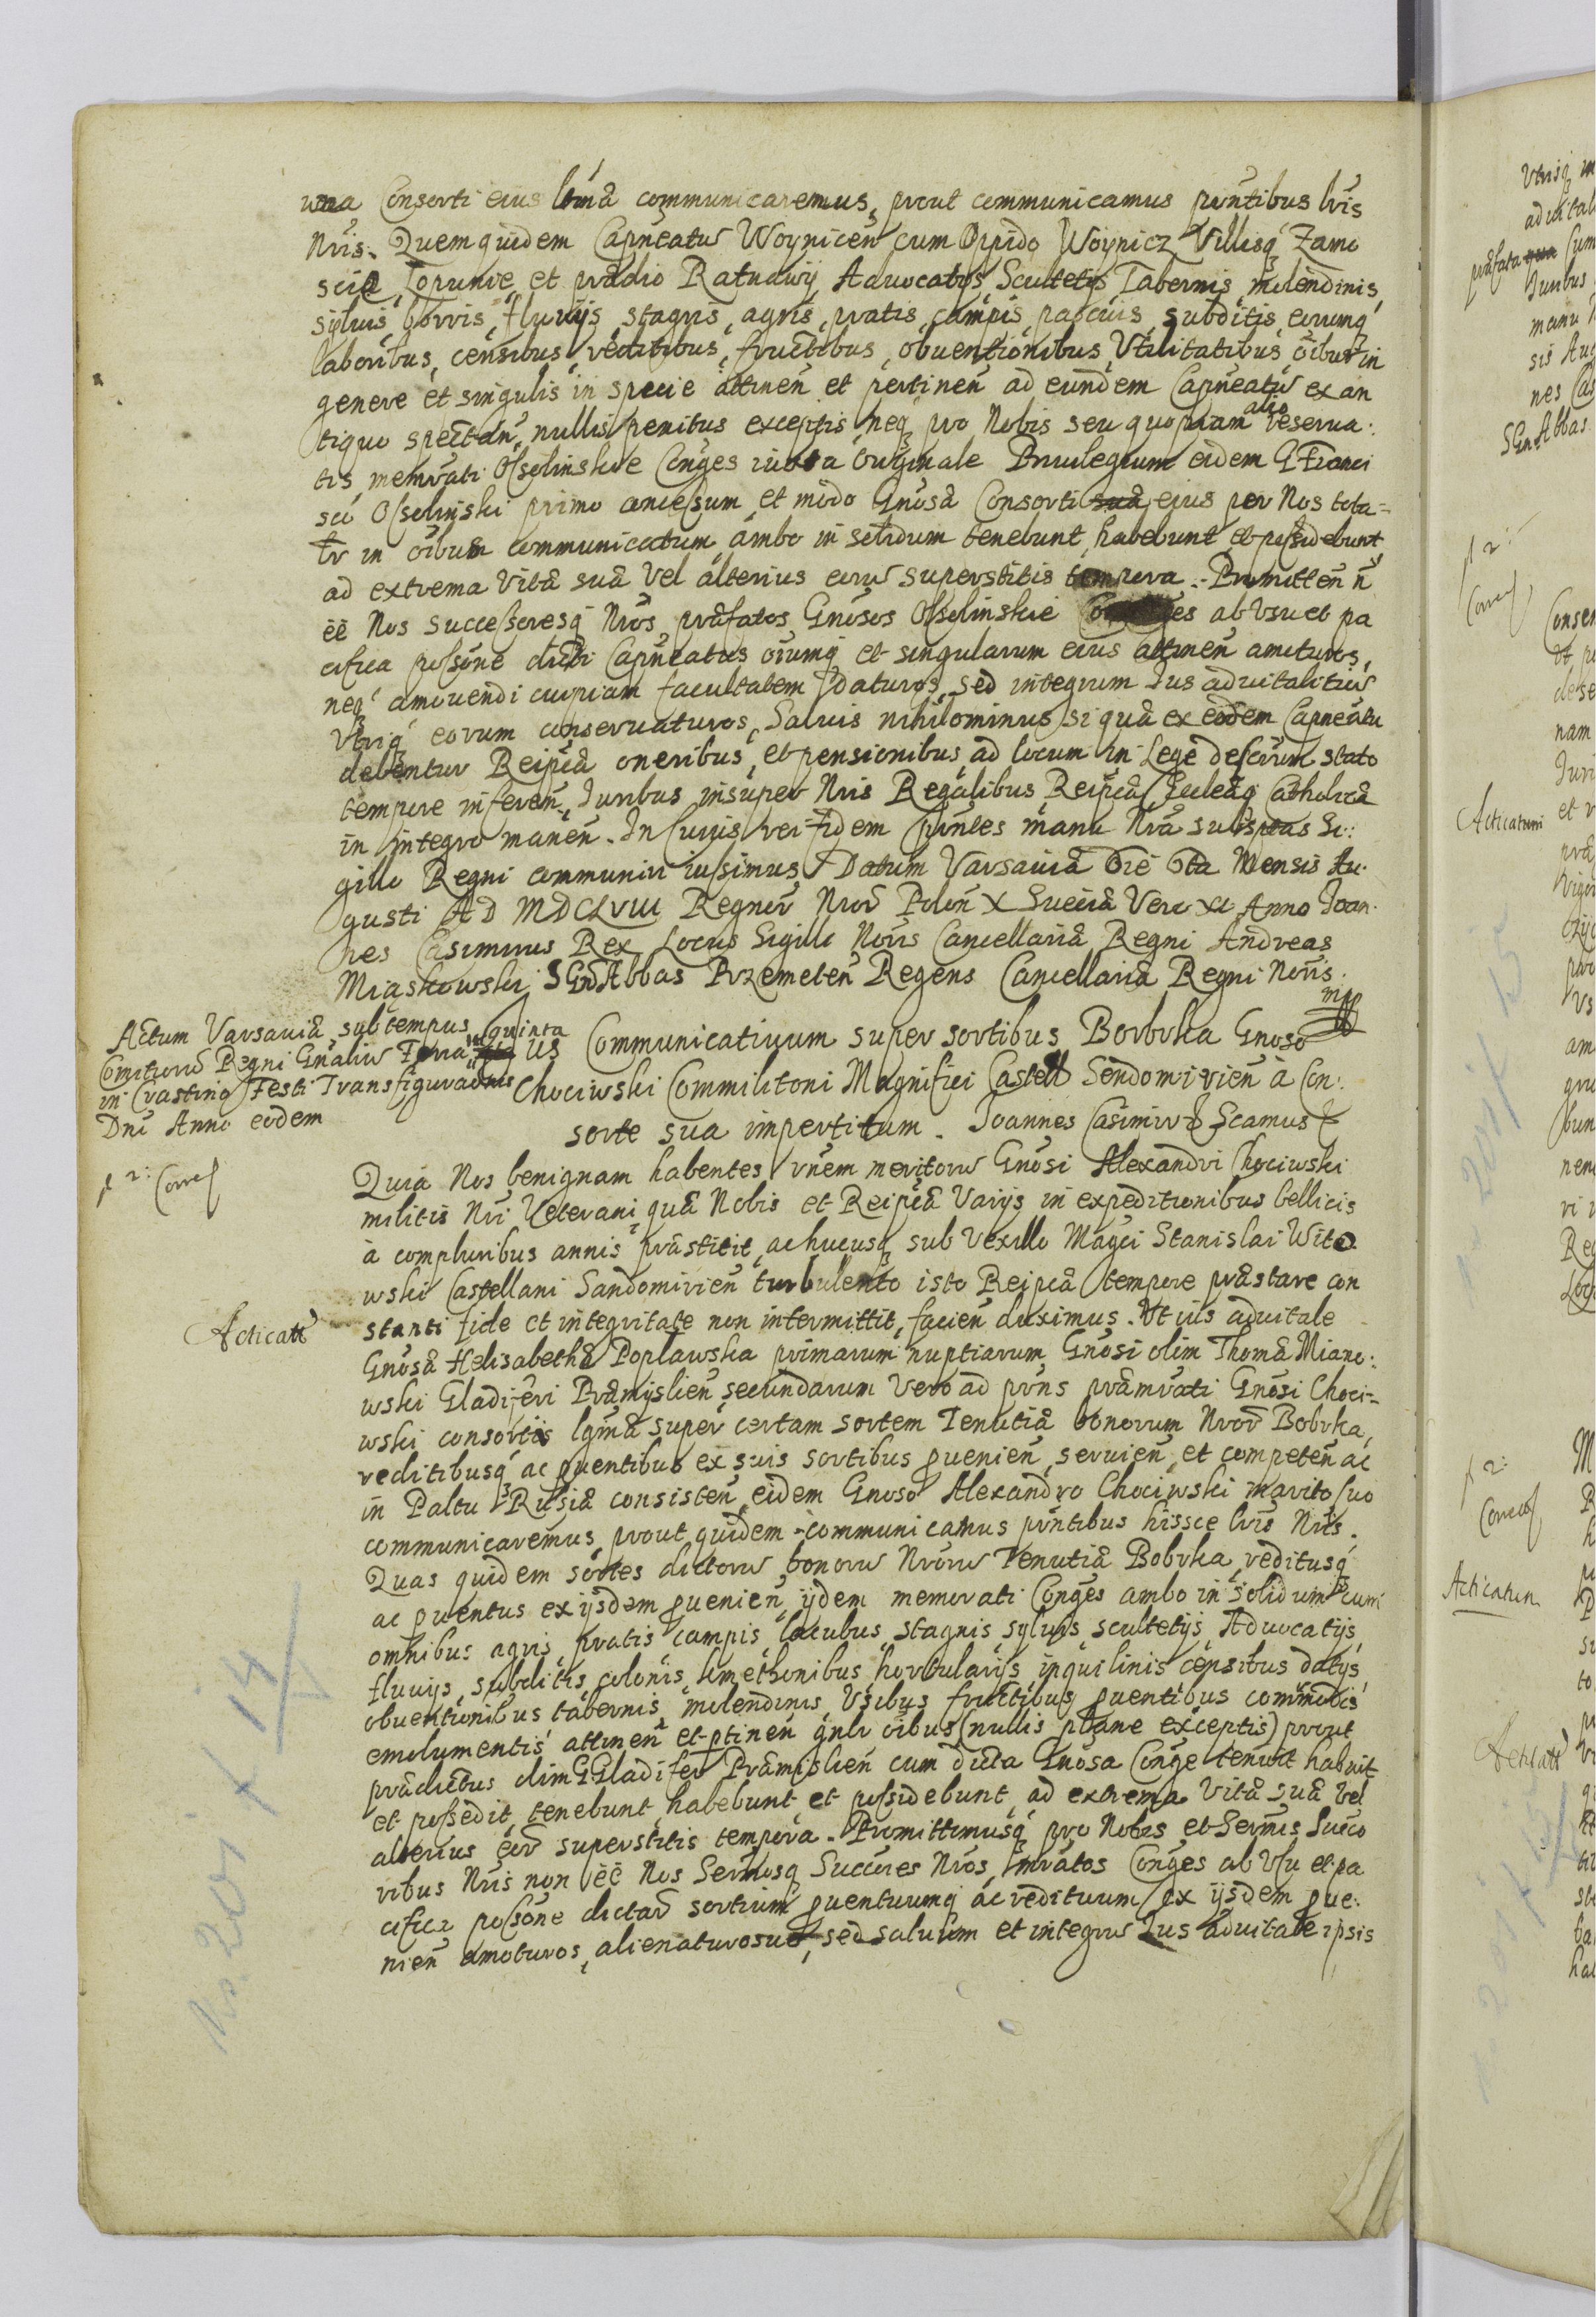 una Consorti eius lgmã communicaremus, prout communicamus pñtibus lris
Nris. Quem quidem Capneatu Woynicen cum Oppido Woynicz Villisq Zamo
scie Łopunie et prædio Ratnawy Aduocatys Scultetys Tabernis, molendinis,
syluis, borris, fluuijs, stagnis, agris, pratis, campis, pascuis, subditis, eorumq
laboribus, censibus, reditibus, fructibus, obuentionibus, Utilitatibus, oibus in
genere et singulis in specie attinen et pertinen ad eundem Capneatu ex an
tiquo spectan, nullis penitus exceptis neq pro Nobis seu quopiam alio reserua:
tis, memrati Ossolinskie Conges iuxta originale Priuilegium eidem G Franci
sco Ossolinski primo concessum et modo Gnosã Consorti suã eius per Nos tota=
lr in oibus communicatum ambo in solidum tenebunt, habebunt et possidebunt
ad extrema Vitã suã Vel alterius eoru superstitis tempora. Promitten n
ee Nos Successoresq Nros præfatos Gnosos Ossolinskie Conges ab Usu et pa
cifica possone dicti Capneatus oiumq et singularum eius attinen amoturos,
neq amouendi cuipiam facultatem daturos, sed integrum Ius aduitalitiu
Utriq eorum conseruaturos, Saluis nihilominus si quã ex eodem Capneatu
debentur Reipcã oneribus, et pensionibus, ad locum in Lege descrum stato
tempore inferen, Juribus insuper Nris Regalibus Reipcã Eccleãq Catholicã
in integro manen. In Cuius rei fidem pñtes manu Nrã subsptas Si:
gillo Regni communiri iussimus. Datum Varsauiã Die 6ta Mensis Au:
gusti AD MDCLVIII Regnor Nror Polon X Sueciã Vero XI Anno Joan:
nes Casimirus Rex Locus Sigilli Noris Cancellariã Regni Andreas
Miaskowski SGn Abbas Przemeten Regens Cancellariã Regni Noris.
mpp
Actum Varsauiã sub tempus
Comitioru Regni Gnaliu Feria quinta
in Crastino Festi Transfiguraonis
Dni Anno eodem
Ius Communicatiuum super sortibus Borbrka Gnoso
Chociwski Commilitoni Magnifici Castell Sendomirien à Con:
sorte sua impertitum. Joannes Casimirus Scamus
p 2: Corres
Quia Nos benignam habentes rnem meritoru Gnosi Alexandri Chociwski
militis Nri Veterani, quã Nobis et Reipcã Varijs in expeditionibus bellicis
à compluribus annis præstitit, ac hucusq sub Vexillo Magci Stanislai Wito
wski Castellani Sandomirien turbulento isto Reipcã tempore præstare con
Acticatu
stanti fide et integritate non intermittit, facien duximus. Ut iis aduitale
Gnosã Helisabethã Poplawska primarum nuptiarum Gnosi olim Thomã Miano:
wski Gladiferi Præmyslien secundarum Vero ad prns præmrati Gnosi Choci=
wski consortis lgmã super certam sortem Tenutiã bonorum Nror Bobrka,
reditibusq ac puentibus ex suis sortibus puenien, seruien, et competen ac
in Paltu Russiã consisten eidem Gnoso Alexandro Chociwski marito suo
communicaremus, prout quidem communicamus pñtibus hissce lris Nris.
Quas quidem sortes dictoru bonoru Nroru Tenutiã Bobrka, reditusq
ac puentus ex ijsdem puenien, ijdem memorati Conges ambo in solidum cum
omnibus agris, pratis, campis, lacubus, stagnis, syluis, scultetijs, Aduocatijs,
fluuijs, subditis, colonis, kmethonibus, hortulanijs, inquilinis, censibus, datijs,
obuentionibus, tabernis, molendinis, Usibus, fructibus, puentibus, commodis
emolumentis, attinen et ptinen gnlr oibus (nullis plane exceptis) prout
prædictus olim G Gladifer Præmislien cum dicta Gnosa Conge tenuit habuit
et possedit, tenebunt, habebunt et possidebunt, ad extrema Vitã suã Vel
alterius eor superstitis tempora. Promittimusq pro Nobis et Sermis Succo
ribus Nris non ee Nos Sermosq Succores Nros, mratos Conges ab Usu et pa
cifica possone dictar sortium puentuumq ac redituum ex ijsdem pue:
nien amoturos, alienaturosue, sed saluum et integru Ius aduitale ipsis